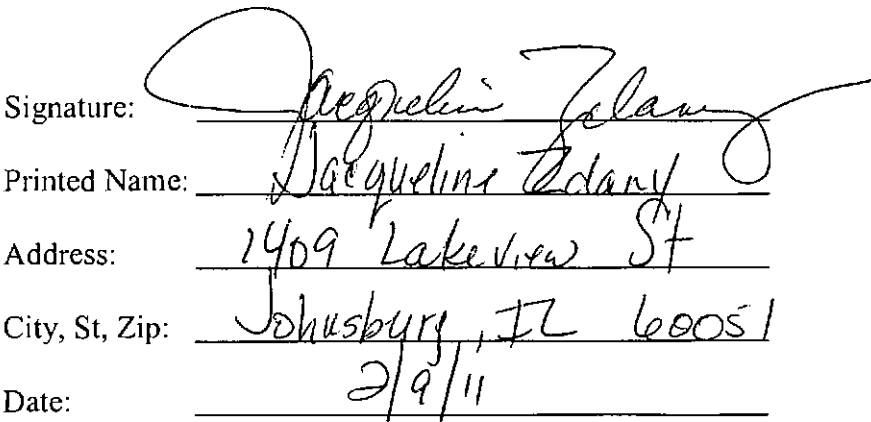 Signature: Jacqueline Zelany
Printed Name: Jacqueline Zelany
Address: 1409 Lakeview St
City, St, Zip: Johnsburg, IL 60051
Date: 2/9/11